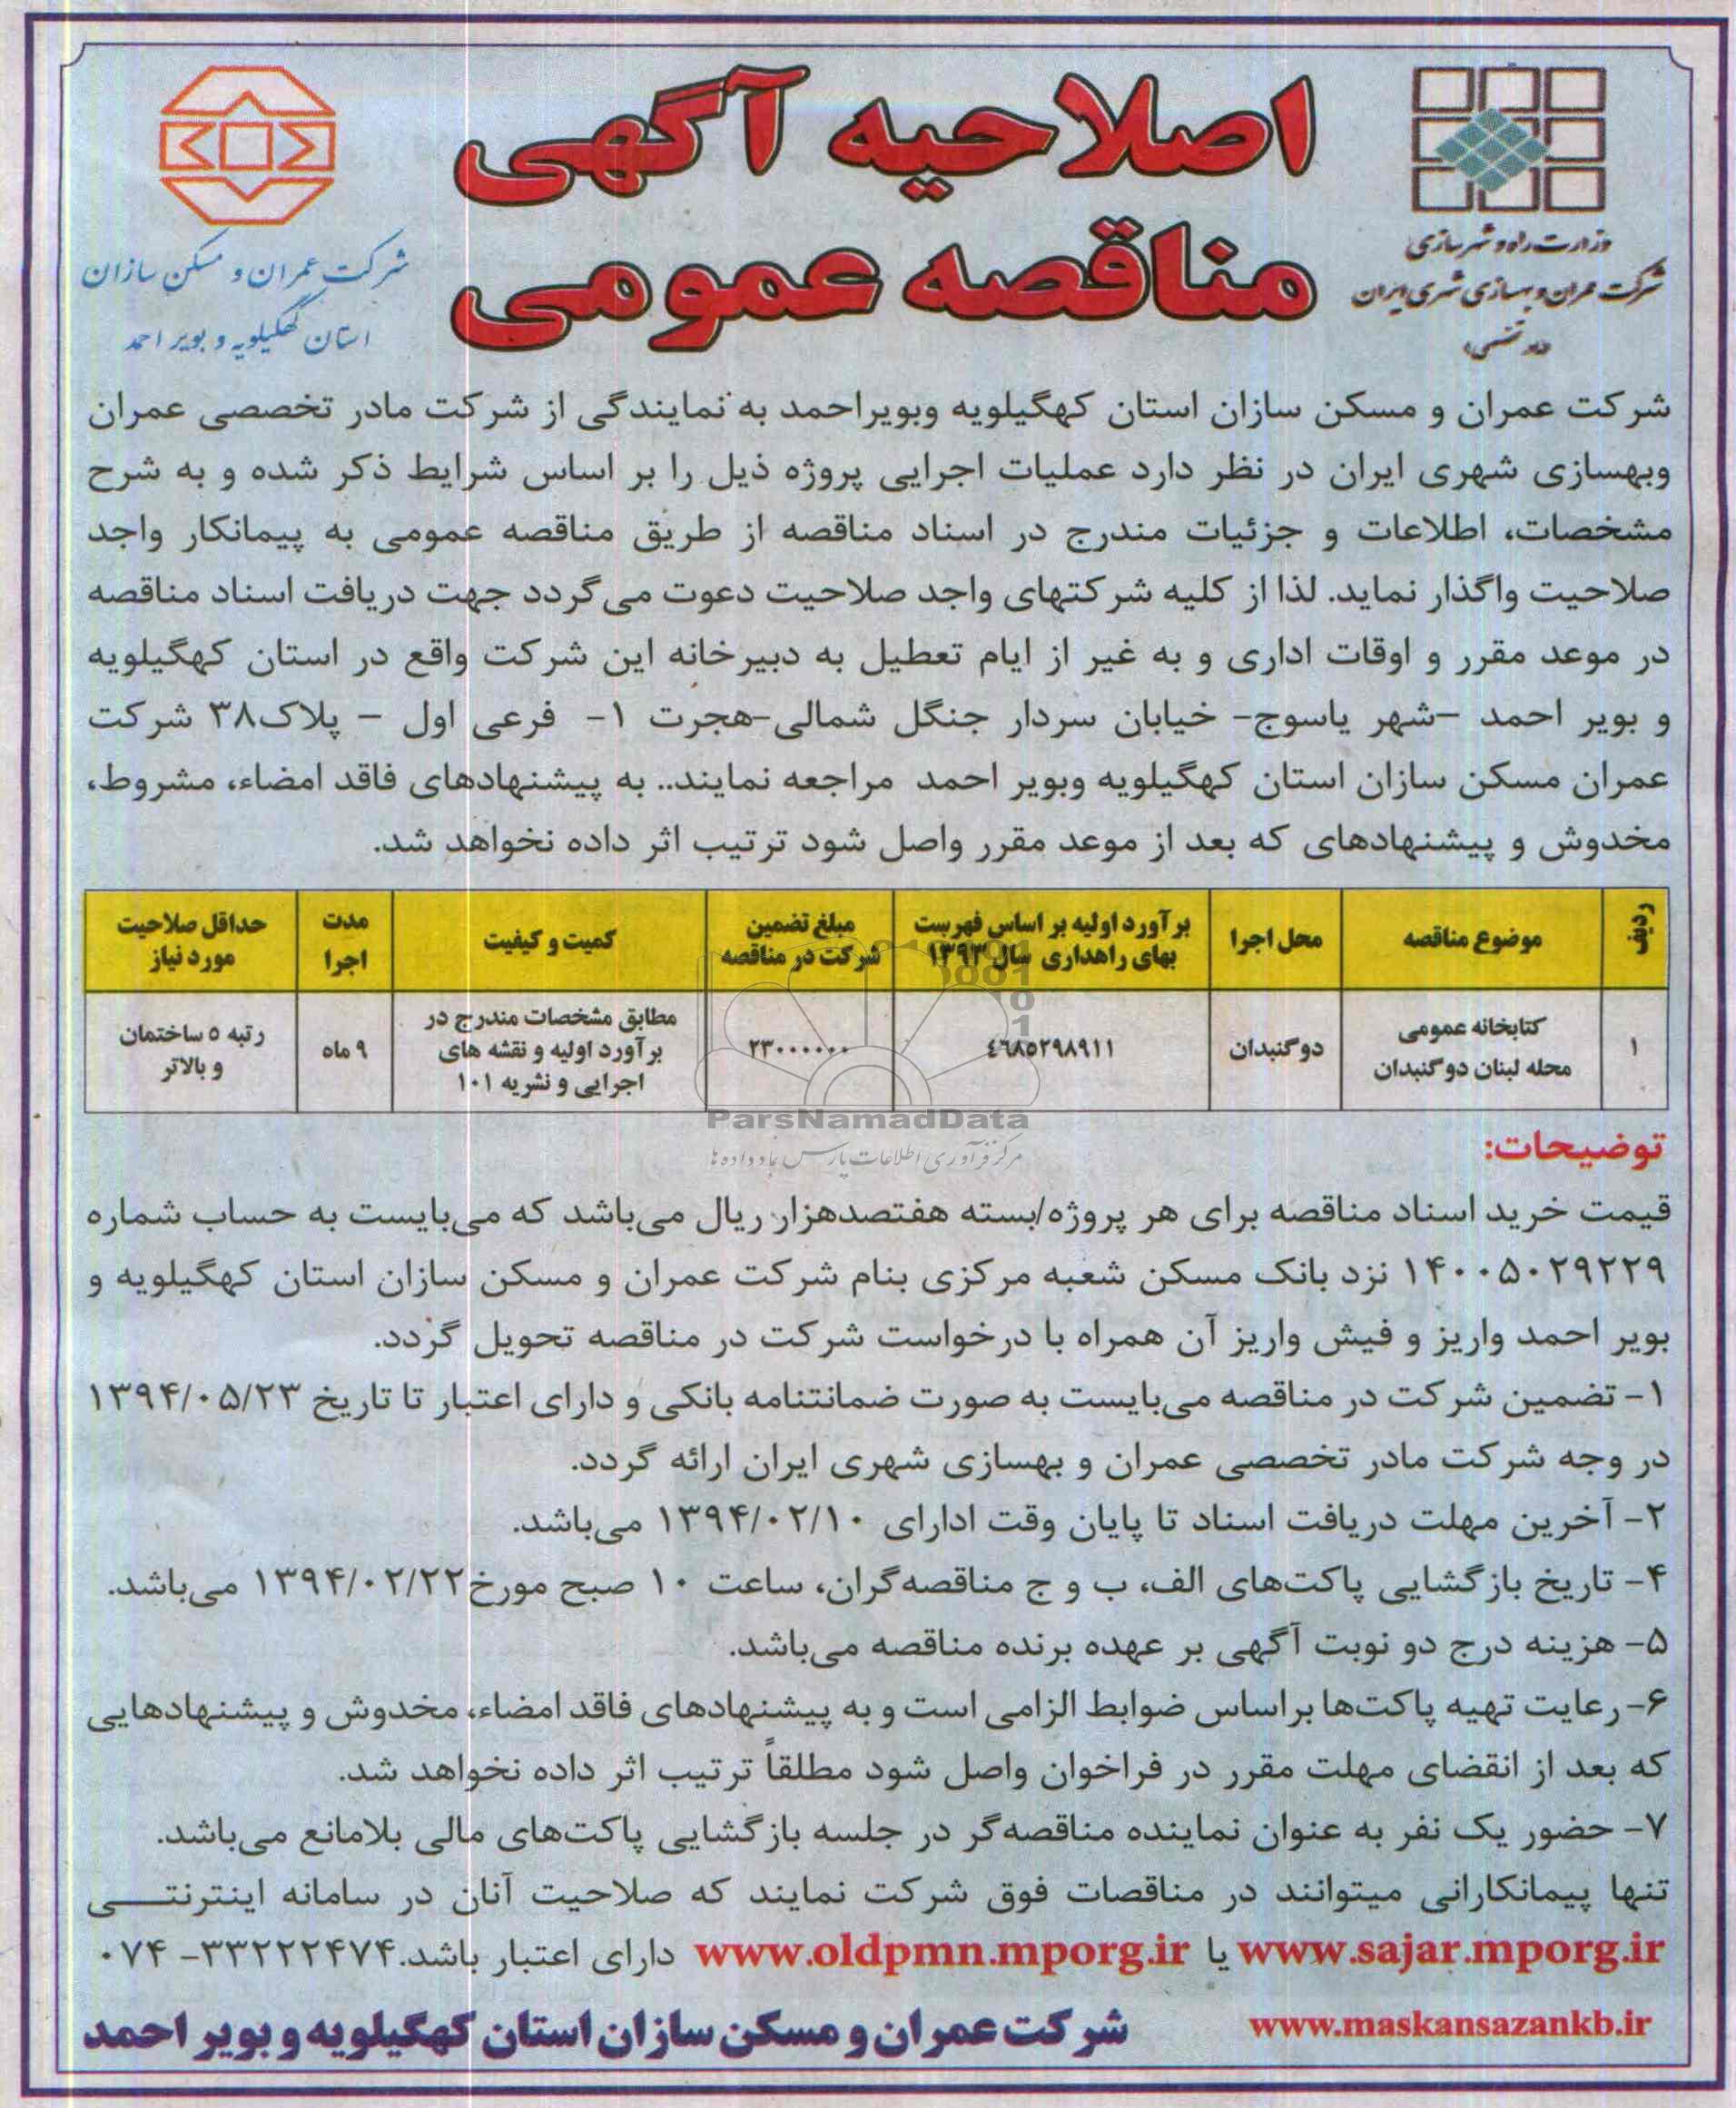 اصلاحیه آگهی
مناقصه عمومی
وزارت راه و شهرسازی
شرکت عمران و بهسازی شهری ایران
شرکت عمران و مسکن سازان
استان کهگیلویه و بویر احمد
شرکت عمران و مسکن سازان استان کهگیلویه وبویراحمد به نمایندگی از شرکت مادر تخصصی عمران
وبهسازی شهری ایران در نظر دارد عملیات اجرایی پروژه ذیل را بر اساس شرایط ذکر شده و به شرح
مشخصات، اطلاعات و جزئیات مندرج در اسناد مناقصه از طریق مناقصه عمومی به پیمانکار واجد
صلاحیت واگذار نماید. لذا از کلیه شرکتهای واجد صلاحیت دعوت می‌گردد جهت دریافت اسناد مناقصه
در موعد مقرر و اوقات اداری و به غیر از ایام تعطیل به دبیرخانه این شرکت واقع در استان کهگیلویه
و بویر احمد –شهر یاسوج- خیابان سردار جنگل شمالی-هجرت ۱- فرعی اول – پلاک۳۸ شرکت
عمران مسکن سازان استان کهگیلویه وبویر احمد مراجعه نمایند.. به پیشنهادهای فاقد امضاء، مشروط،
مخدوش و پیشنهادهای که بعد از موعد مقرر واصل شود ترتیب اثر داده نخواهد شد.
ردیف
موضوع مناقصه
محل اجرا
برآورد اولیه بر اساس فهرست
بهای راهداری سال ۱۳۹۳
مبلغ تضمین
شرکت در مناقصه
کمیت و کیفیت
مدت
اجرا
حداقل صلاحیت
مورد نیاز
۱
کتابخانه عمومی
محله لبنان دوگنبدان
دوگنبدان
۴۶۸۵۲۹۸۹۱۱
۲۳۰۰۰۰۰۰۰
مطابق مشخصات مندرج در
برآورد اولیه و نقشه های
اجرایی و نشریه ۱۰۱
۹ ماه
رتبه ۵ ساختمان
و بالاتر
ParsNamadData
مرکز فرآوری اطلاعات پارس نماد داده ها
توضیحات:
قیمت خرید اسناد مناقصه برای هر پروژه/بسته هفتصدهزار ریال می‌باشد که می‌بایست به حساب شماره
۱۴۰۰۵۰۲۹۲۲۹ نزد بانک مسکن شعبه مرکزی بنام شرکت عمران و مسکن سازان استان کهگیلویه و
بویر احمد واریز و فیش واریز آن همراه با درخواست شرکت در مناقصه تحویل گردد.
۱- تضمین شرکت در مناقصه می‌بایست به صورت ضمانتنامه بانکی و دارای اعتبار تا تاریخ ۱۳۹۴/۰۵/۲۳
در وجه شرکت مادر تخصصی عمران و بهسازی شهری ایران ارائه گردد.
۲- آخرین مهلت دریافت اسناد تا پایان وقت ادارای ۱۳۹۴/۰۲/۱۰ می‌باشد.
۴- تاریخ بازگشایی پاکت‌های الف، ب و ج مناقصه‌گران، ساعت ۱۰ صبح مورخ۱۳۹۴/۰۲/۲۲ می‌باشد.
۵- هزینه درج دو نوبت آگهی بر عهده برنده مناقصه می‌باشد.
۶- رعایت تهیه پاکت‌ها براساس ضوابط الزامی است و به پیشنهادهای فاقد امضاء، مخدوش و پیشنهادهایی
که بعد از انقضای مهلت مقرر در فراخوان واصل شود مطلقاً ترتیب اثر داده نخواهد شد.
۷- حضور یک نفر به عنوان نماینده مناقصه‌گر در جلسه بازگشایی پاکت‌های مالی بلامانع می‌باشد.
تنها پیمانکارانی میتوانند در مناقصات فوق شرکت نمایند که صلاحیت آنان در سامانه اینترنتی
www.sajar.mporg.ir یا www.oldpmn.mporg.ir دارای اعتبار باشد.۳۳۲۲۲۴۷۴- ۰۷۴
www.maskansazankb.ir
شرکت عمران و مسکن سازان استان کهگیلویه و بویر احمد